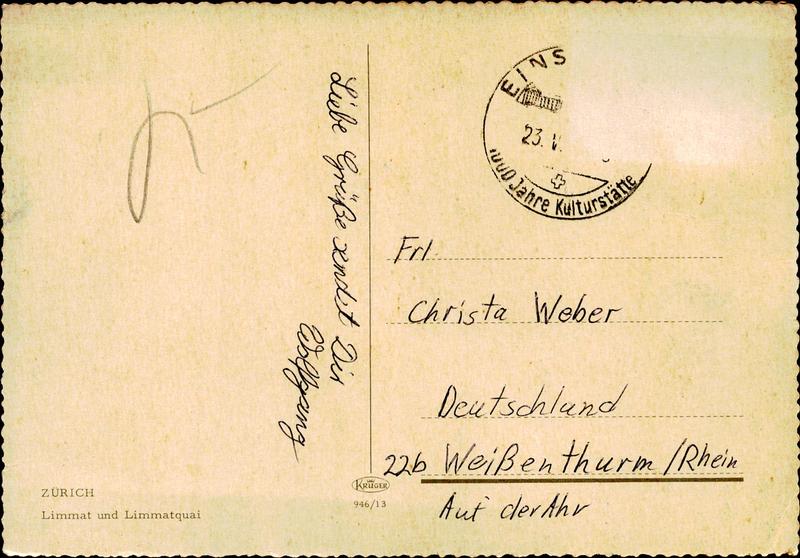 Liebe Grüße sendet Dir
Wolfgang
EINS
23. V
1000 Jahre Kulturstätte
Frl.
Christa Weber
Deutschland
22b Weißenthurm/Rhein
Auf der Ahr
KRÜGER
946/13
ZÜRICH
Limmat und Limmatquai